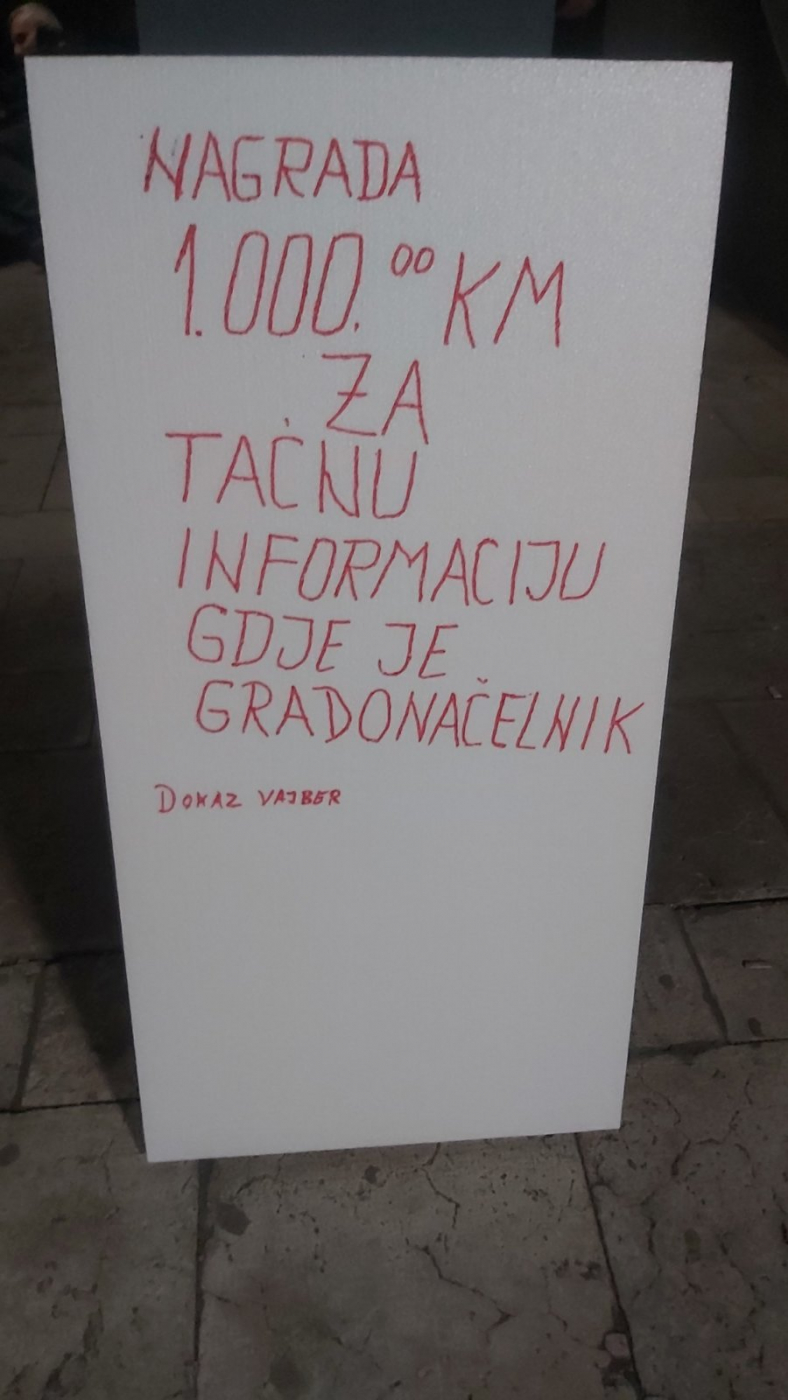 NAGRADA
1.000.00 KM
ZA
TAČNU
INFORMACIJU
GDJE JE
GRADONAČELNIK
DOKAZ VAJBER